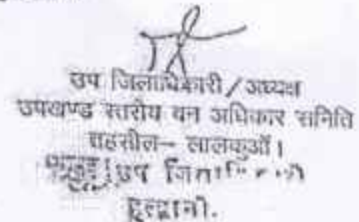 उप जिलाधिकारी/अध्यक्ष
उपखण्ड स्तरीय वन अधिकार समिति
तहसील- लालकुआँ।
उप जिलाधिकारी
हल्द्वानी.